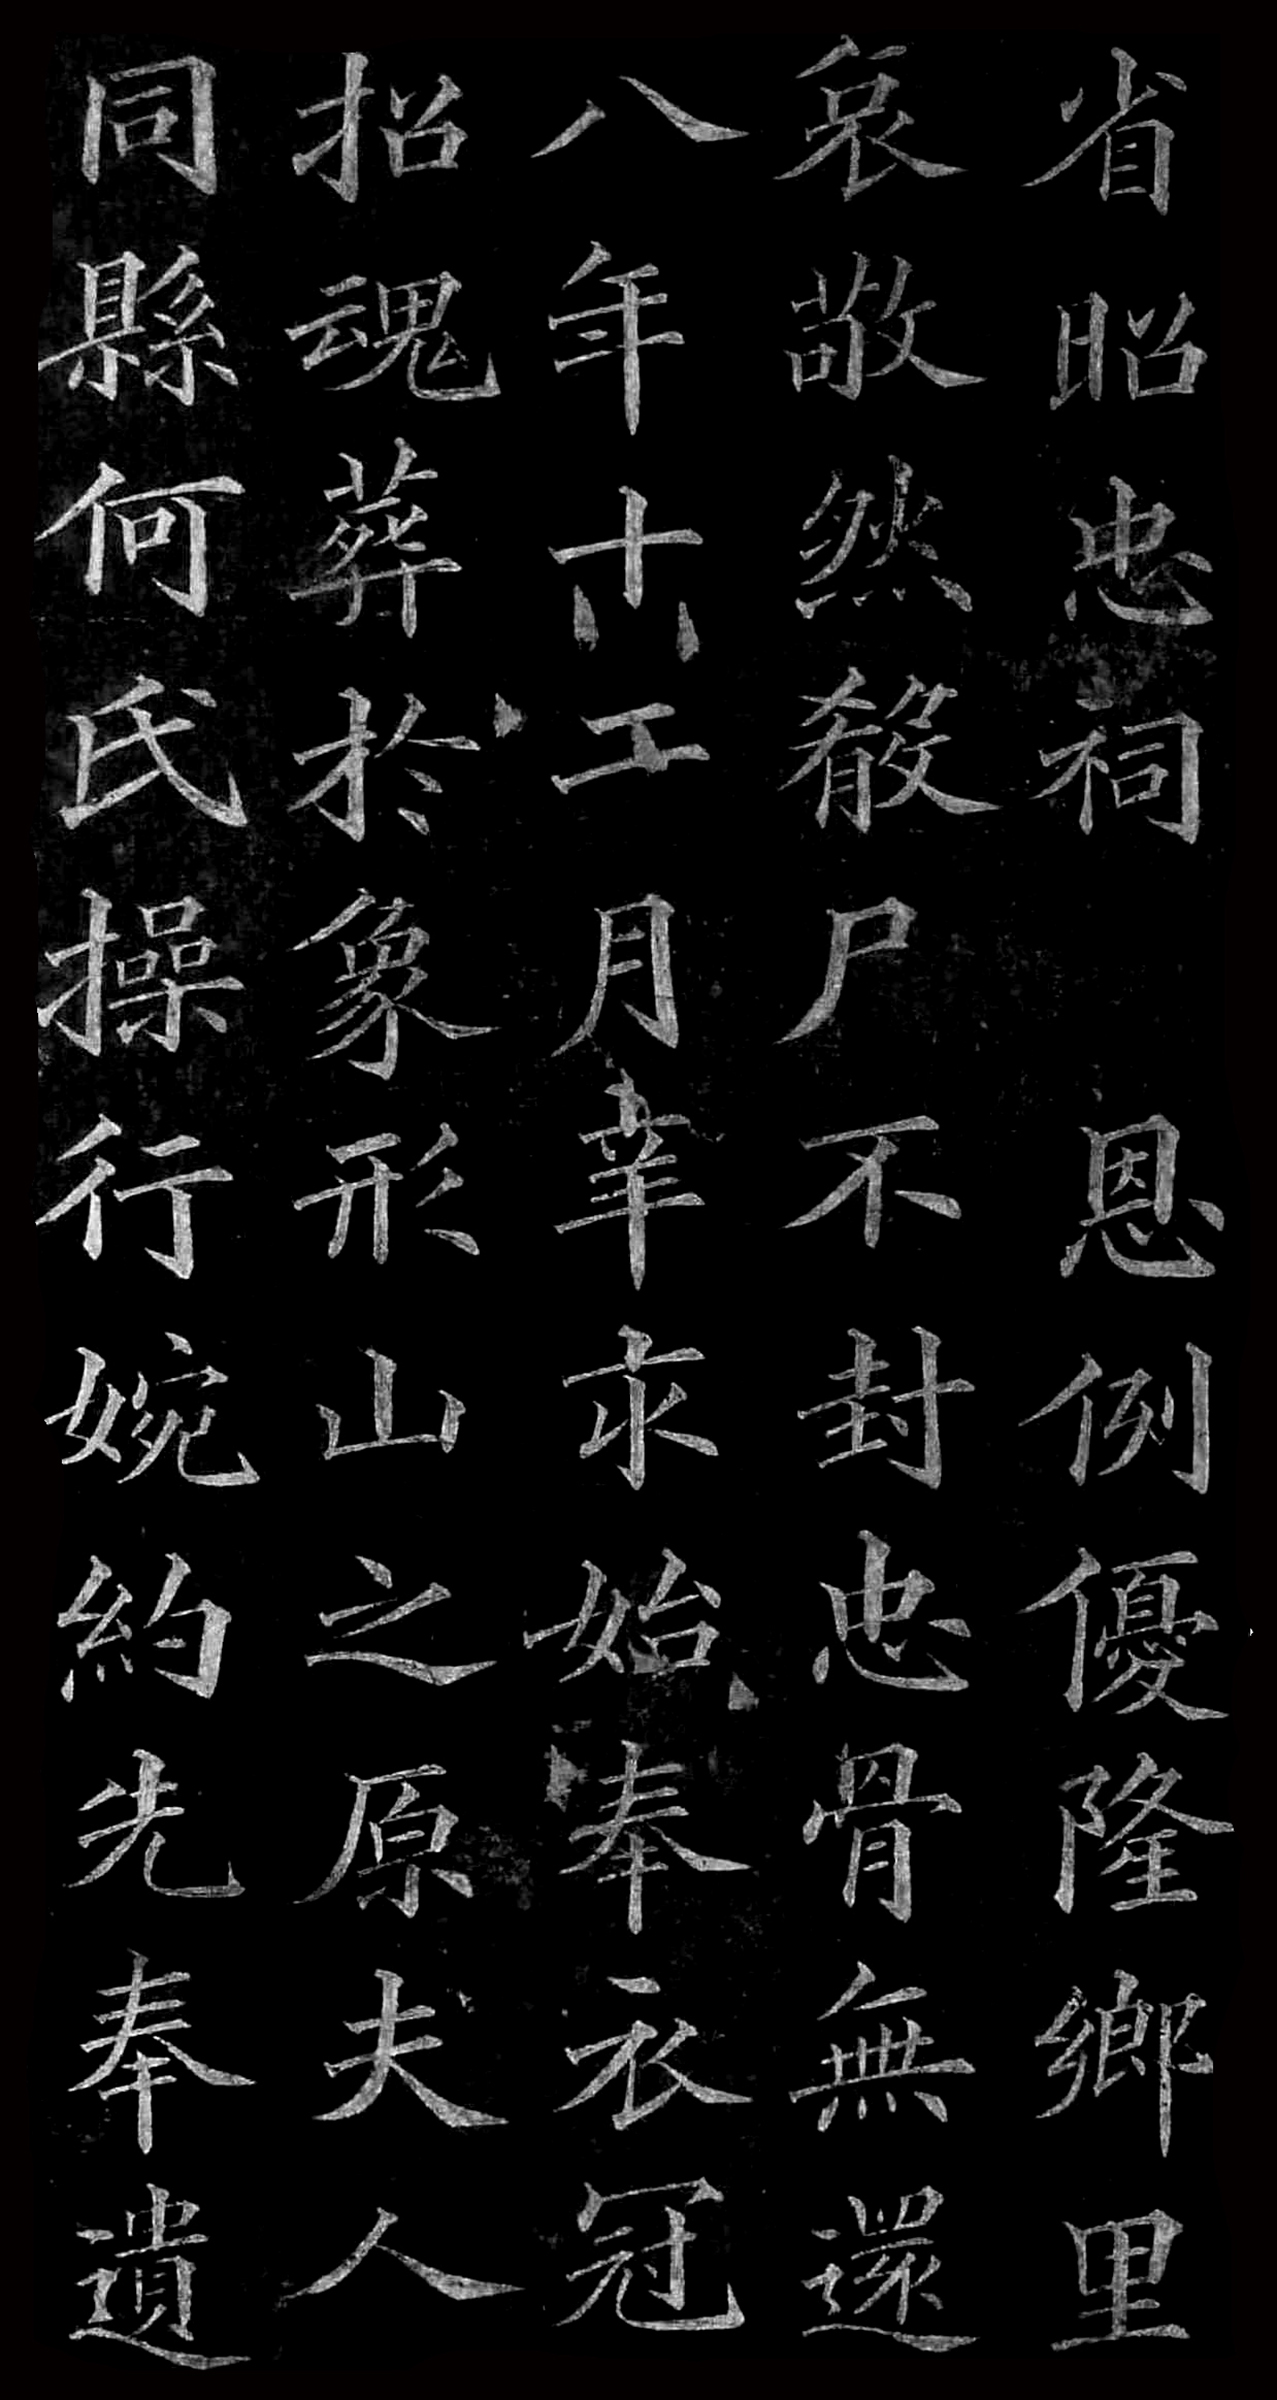 省昭忠祠　恩例優隆鄉里
哀敬然殽尸不封忠骨無還
八年十二月求始奉衣冠
招魂葬於象形山之原夫人
同縣何氏操行婉約先奉遺